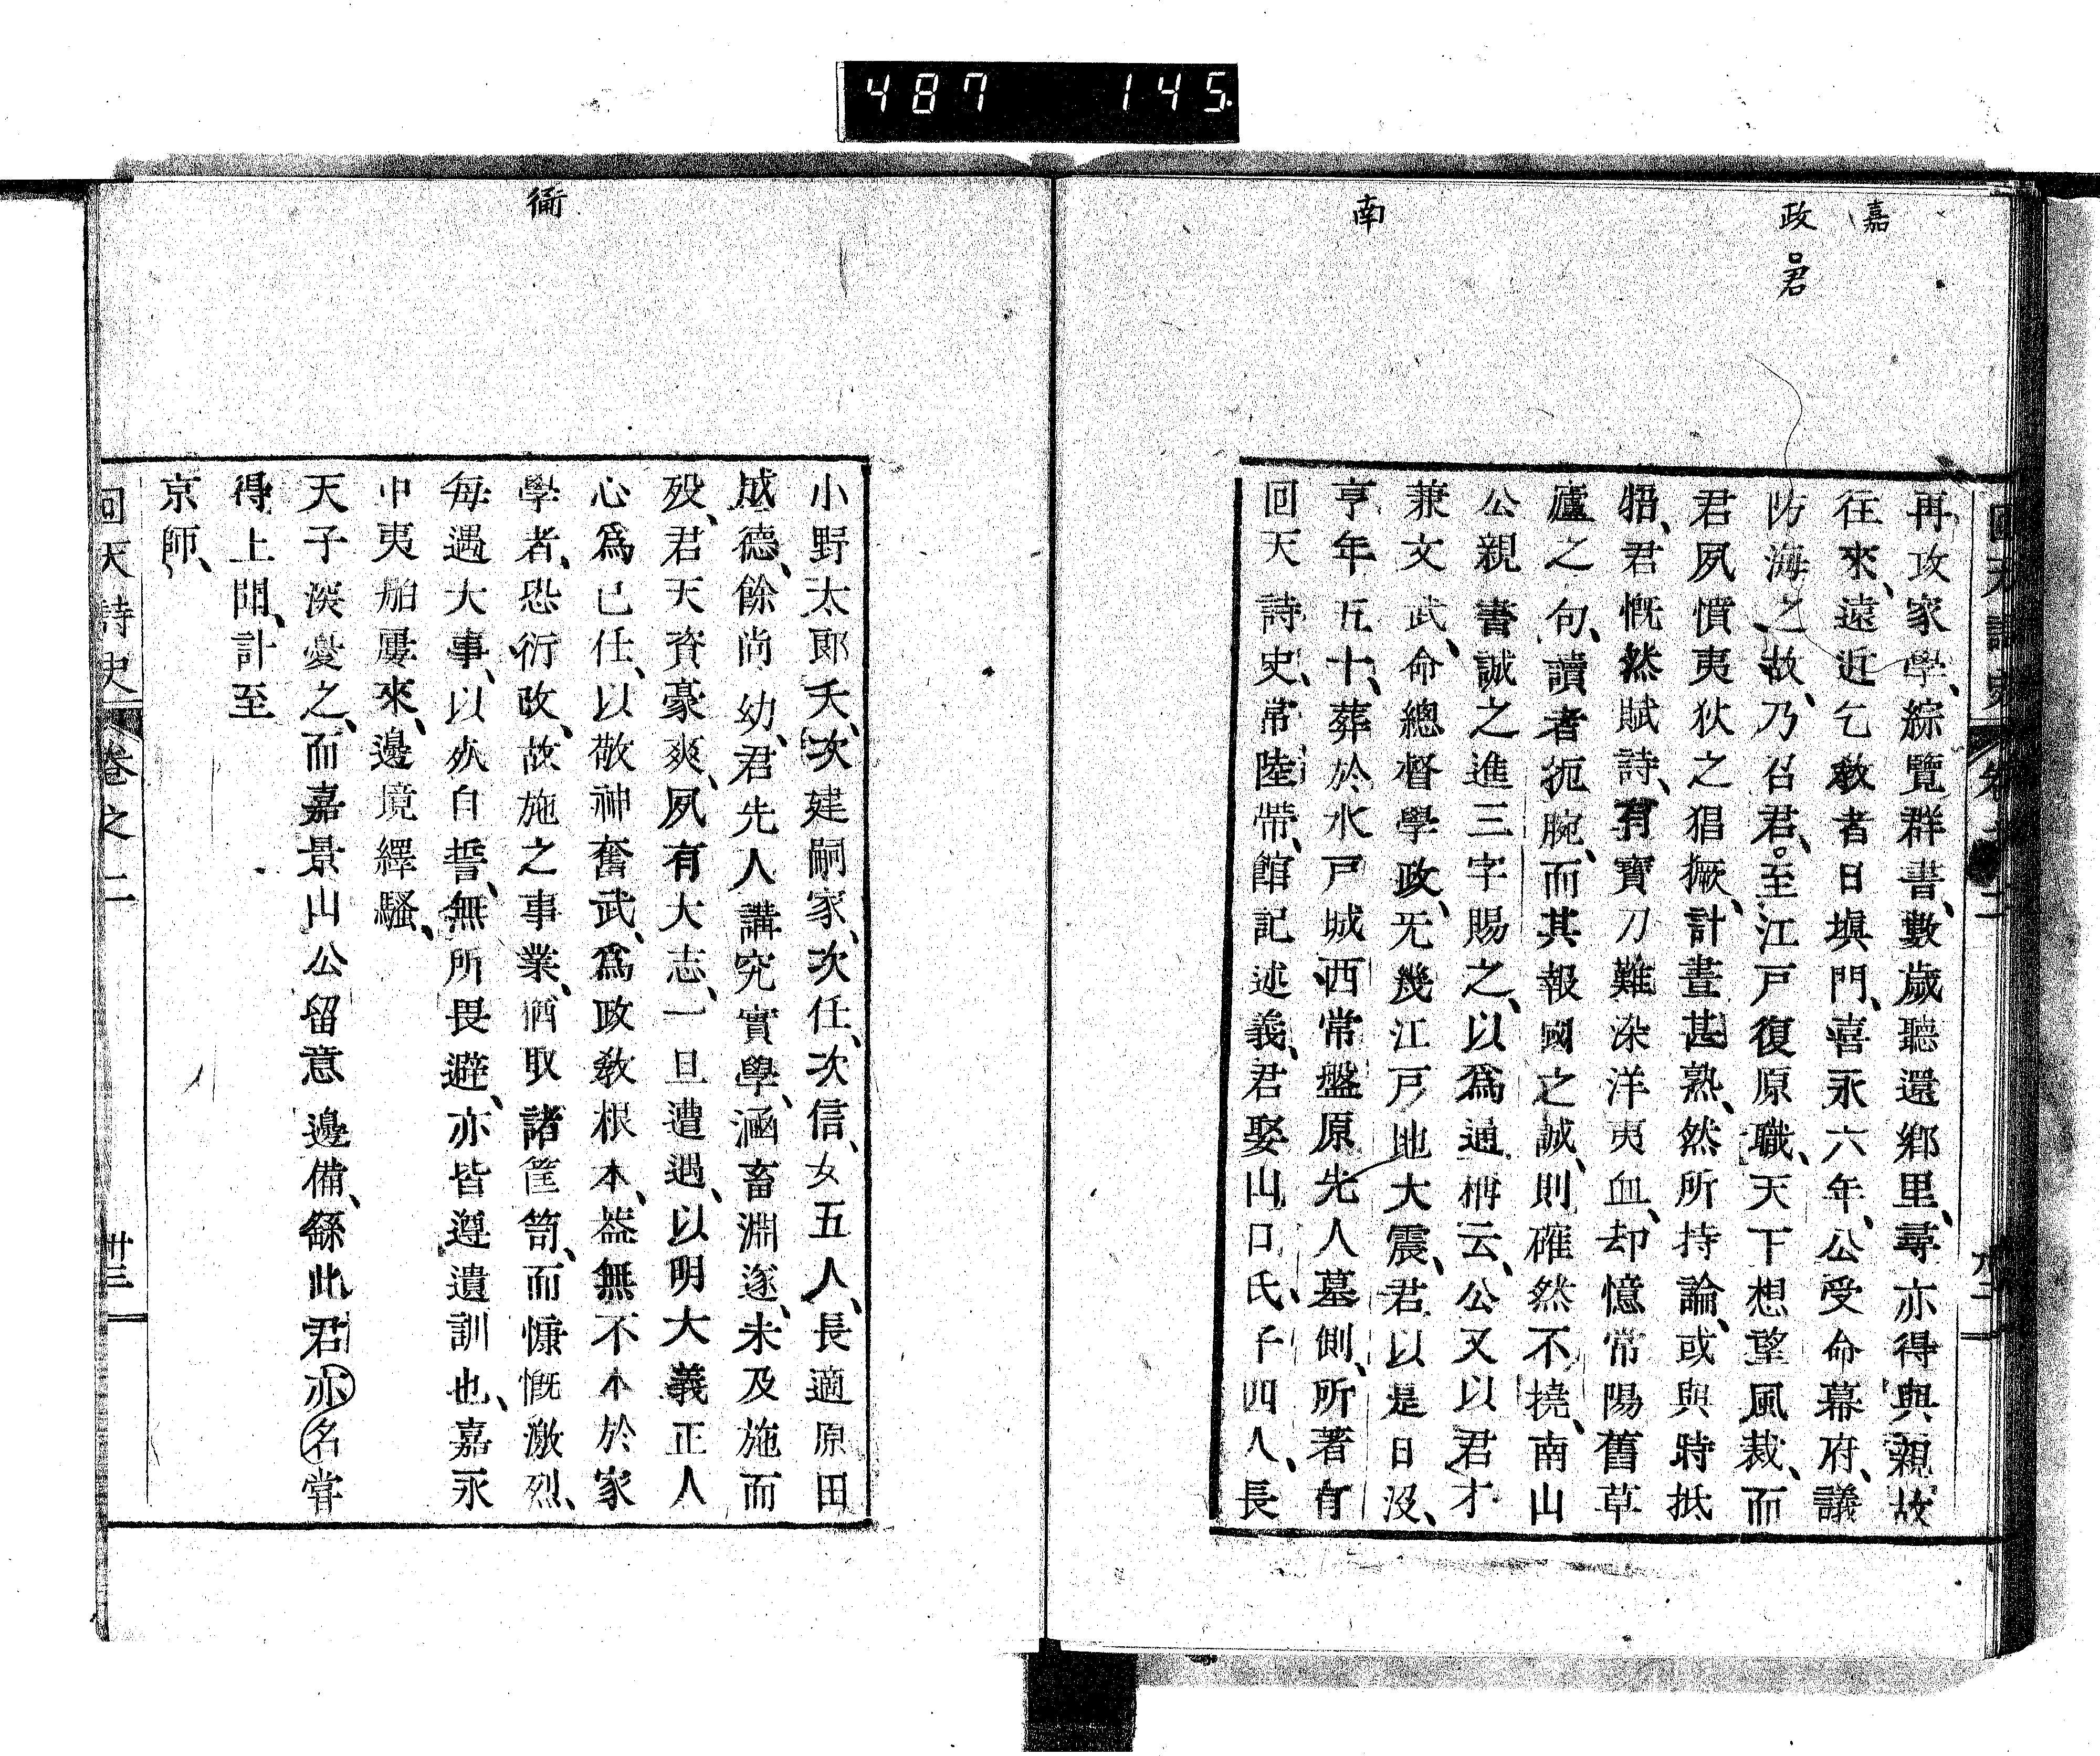 487 145
嘉
政
君
南
再攻家學、綜覽群書、數歲聽還鄉里、尋亦得與親故
往來、遠近乞教者日塡門、喜永六年、公受命幕府、議
防海之故、乃召君、至江戸復原職、天下想望風裁、而
君夙憤夷狄之猖獗、計畫甚熟、然所持論、或與時抵
牾、君慨然賦詩、有寶刀難染洋夷血、却憶常陽舊草
廬之句、讀者扼腕、而其報國之誠、則確然不撓、南山
公親書誠之進三字賜之、以爲通稱云、公又以君才
兼文武、命總督學政、无幾江戸地大震、君以是日沒、
亨年五十、葬於水戸城西常盤原先人墓側、所著有
回天詩史、常陸帶、館記述義、君娶山口氏、子四人、長
衞
小野太郎夭、次建嗣家、次任、次信、女五人、長適原田
成德、餘尚幼、君先人講究實學、涵畜淵邃、未及施而
歿、君天資豪爽、夙有大志、一旦遭遇、以明大義正人
心爲已任、以敬神奮武、爲政教根本、葢無不本於家
學者、恐衍改、故施之事業、猶取諸筐笥、而慷慨激烈、
每遇大事、以死自誓、無所畏避、亦皆遵遺訓也、嘉永
中夷舶屢來、邊境繹騷、
天子深憂之、而嘉景山公留意邊備、繇此君亦名嘗
得上聞、計至
京師、
回天詩史 卷之二 卅三